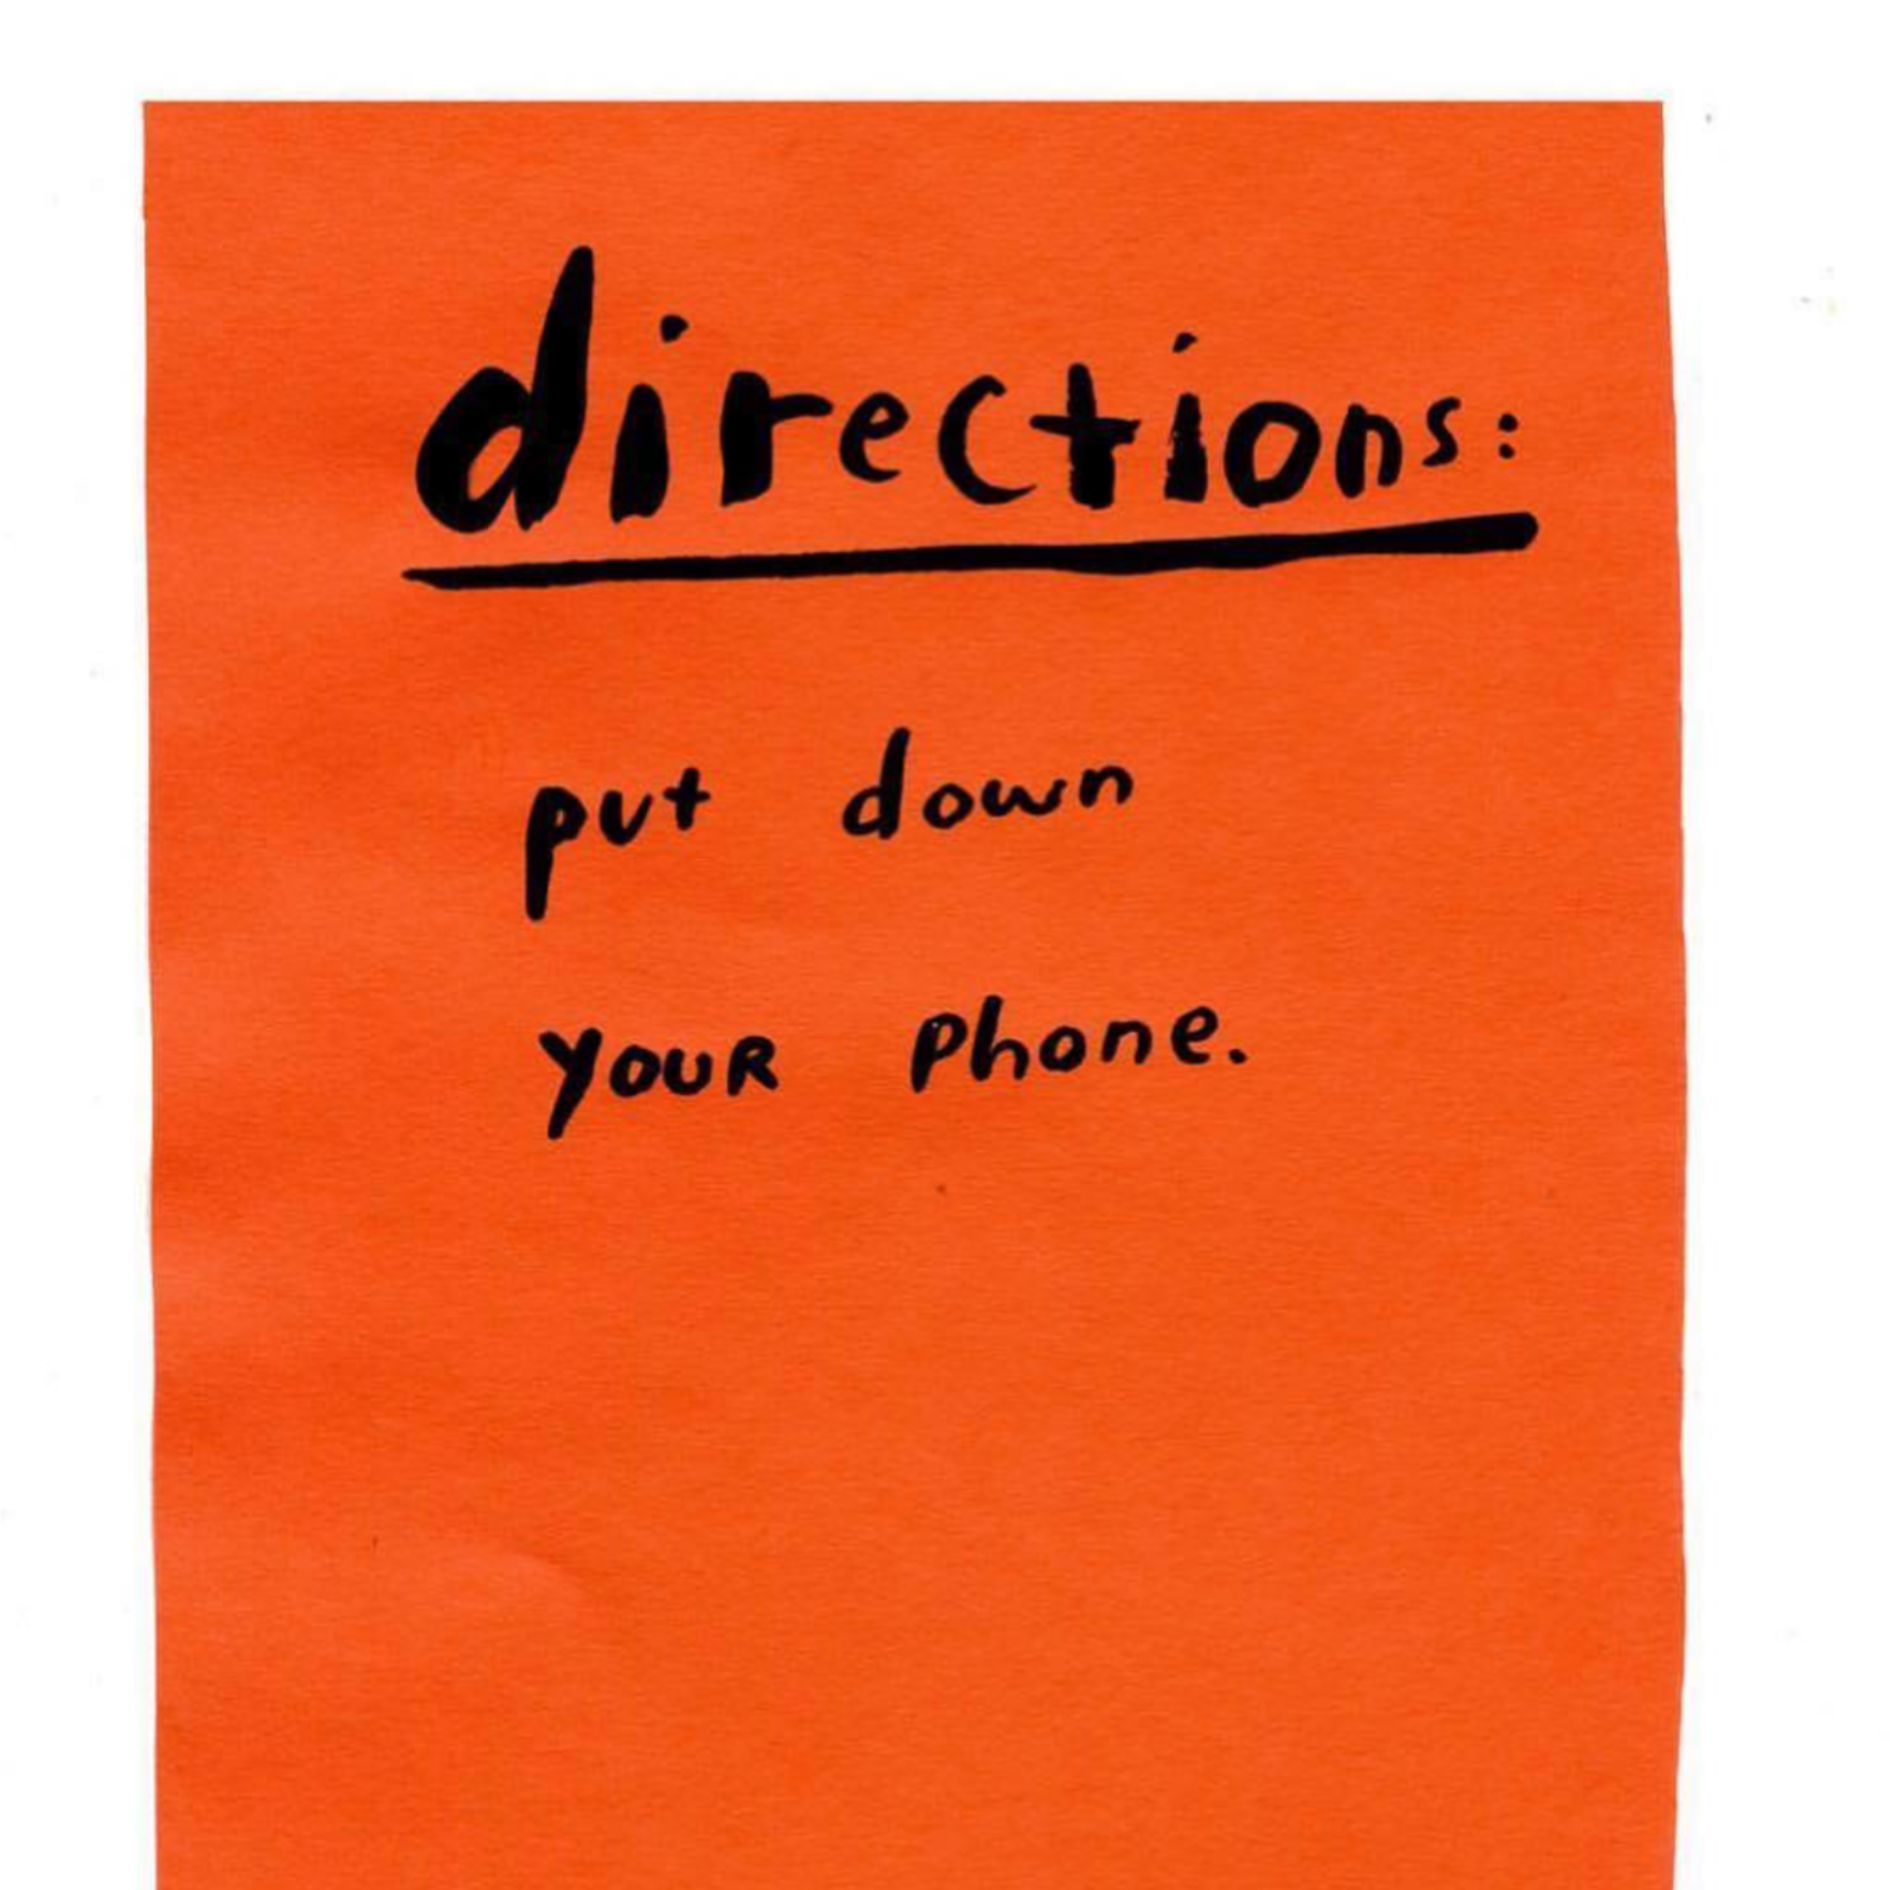 directions:
put down
youR phone.